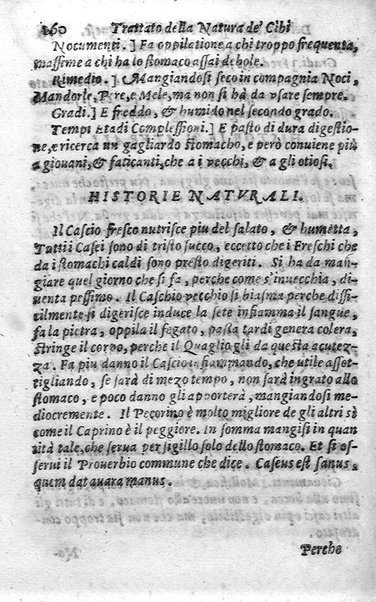 260 Trattato della Natura de' Cibi
Nocumenti. ] Fa oppilatione a chi troppo frequenta,
massime a chi ha lo stomaco assai debole.
Rimedio. ] Mangiandosi seco in compagnia Noci,
Mandorle, Pere, e Mele, ma non si hà da vsare sempre.
Gradi. ] E freddo, & humido nel secondo grado.
Tempi Etadi Complessioni. ] E pasto di dura digestio-
ne, e ricerca un gagliardo stomacho, e però conuiene più
a giouani, & faticanti, che a i vecchi, & a gli otiosi.
HISTORIE NATVRALI.
Il Cascio fresco nutrisce piu del salato, & humetta,
Tuttii Casei sono di tristo succo, eccetto che i Freschi che
da i stomachi caldi sono presto digeriti. Si ha da man-
giare quel giorno che si fa, perche come s'inuecchia, di-
uenta pessimo. Il Caschio vecchio si biasma perche diffi-
cilmente si digerisce induce la sete infiamma il sangue,
fa la pietra, oppila il fegato, passa tardi genera colera,
stringe il corpo, perche il Quaglio gli da questa acutez-
za. Fa piu danno il Cascio infiammando, che utile assot-
tigliando, se sarà di mezo tempo, non sarà ingrato allo
stomaco, e poco danno gli apporterà, mangiandosi me-
diocremente. Il Pecorino è molto migliore de gli altri sì
come il Caprino è il peggiore. In somma mangisi in quan
tità tale, che serua per sigillo solo dello stomaco. Et si os-
serui il Prouerbio commune che dice. Caseus est sanus,
quem dat auara manus.
Perche